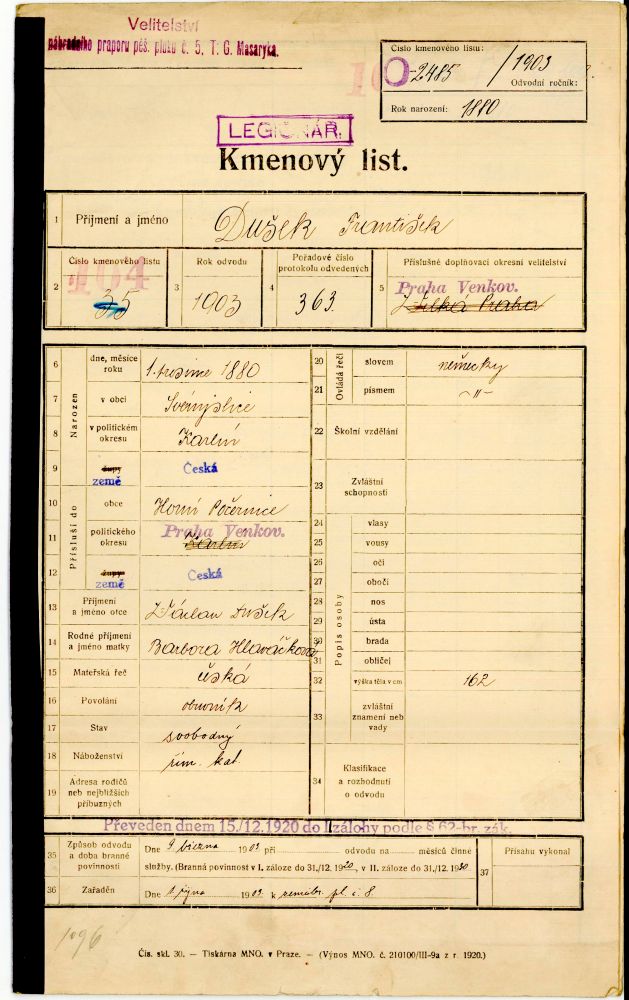 Velitelství
náhradního praporu pěš. pluku č. 5, T. G. Masaryka.
Číslo kmenového listu:
2485 / 1903
Odvodní ročník:
Rok narození: 1880
LEGIONÁŘ.
Kmenový list.
1 Příjmení a jméno Dušek František
2 Číslo kmenového listu 104 35
3 Rok odvodu 1903
4 Pořadové číslo protokolu odvedených 363.
5 Příslušné doplňovací okresní velitelství Praha Venkov. Velká Praha
Narozen
6 dne, měsíce roku 1. prosince 1880
7 v obci Svémyslice
8 v politickém okresu Karlín
9 župy země Česká
Přísluší do
10 obce Horní Počernice
11 politického okresu Praha Venkov. Karlín
12 župy země Česká
13 Příjmení a jméno otce Václav Dušek
14 Rodné příjmení a jméno matky Barbora Hlaváčková
15 Mateřská řeč česká
16 Povolání obuvník
17 Stav svobodný
18 Náboženství řím. kat.
19 Adresa rodičů neb nejbližších příbuzných
Ovládá řeči
20 slovem německy
21 písmem -"-
22 Školní vzdělání
23 Zvláštní schopnosti
Popis osoby
24 vlasy
25 vousy
26 oči
27 obočí
28 nos
29 ústa
30 brada
31 obličej
32 výška těla v cm 162
33 zvláštní znamení neb vady
34 Klasifikace a rozhodnutí o odvodu
Převeden dnem 15./12.1920 do I zálohy podle § 62 br. zák.
35 Způsob odvodu a doba branné povinnosti Dne 9 března 1903 při odvodu na měsíců činné
služby. (Branná povinnost v I. záloze do 31./12. 1920, v II. záloze do 31./12. 1930
36 Zařaděn Dne 1 října 1903 k zeměbr. pl. č. 8.
37 Přísahu vykonal
1096
Čís. skl. 30. — Tiskárna MNO. v Praze. — (Výnos MNO. č. 210100/III-9a z r. 1920.)